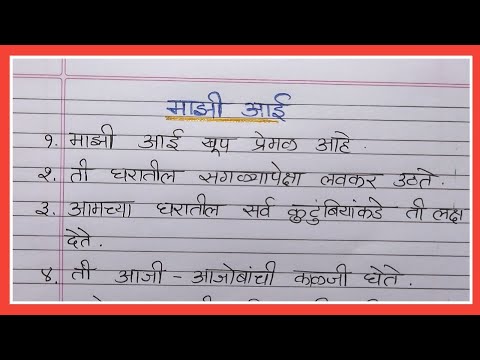 माझी आई
१. माझी आई खूप प्रेमळ आहे.
२. ती घरातील सगळ्यापेक्षा लवकर उठते.
३. आमच्या घरातील सर्व कुटुंबियांकडे ती लक्ष
देते.
४. ती आजी - आजोबांची काळजी घेते.